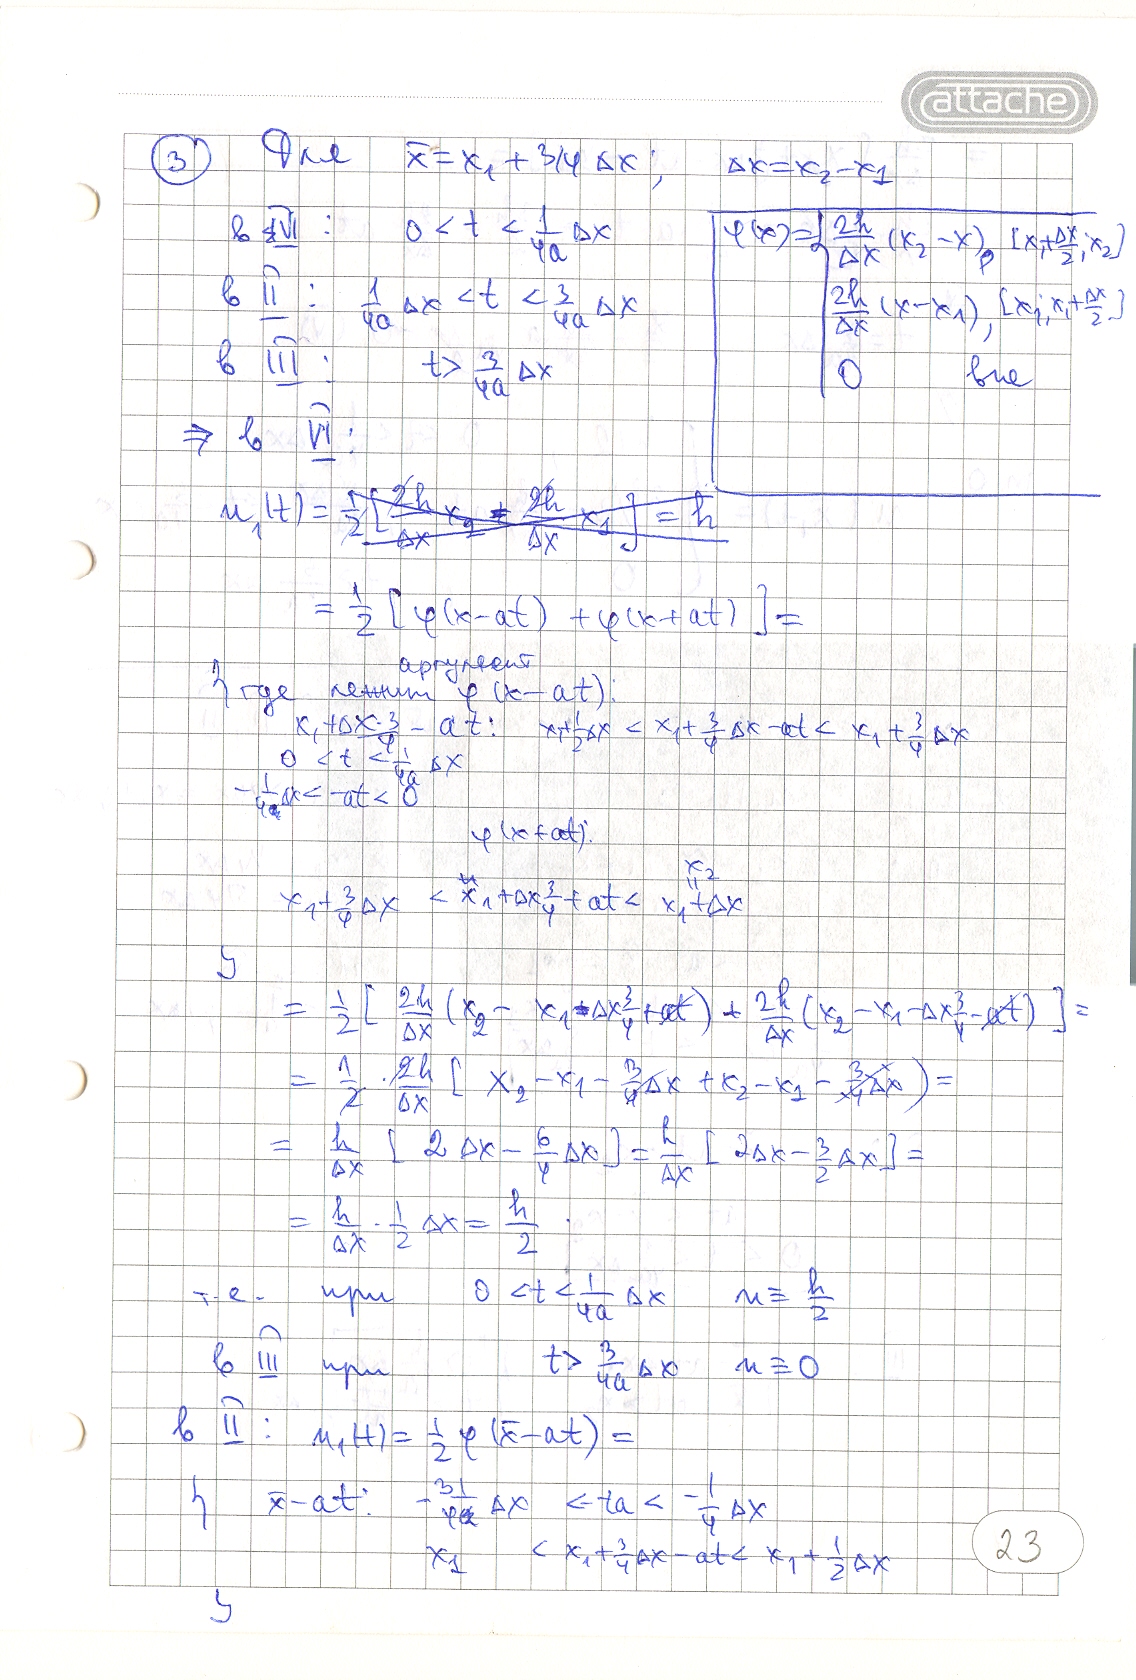 attache
③ Для x̄ = x₁ + 3/4 Δx; Δx = x₂ − x₁
в VI: 0 < t < 1/4a Δx
φ(x) = { 2h/Δx (x₂ − x), [x₁+Δx/2; x₂]
в II: 1/4a Δx < t < 3/4a Δx
2h/Δx (x − x₁), [x₁; x₁+Δx/2]
в III: t > 3/4a Δx
0 вне
⇒ в VI:
u₁(t) = 1/2 [ 2h/Δx x₂ − 2h/Δx x₁ ] = h
= 1/2 [ φ(x−at) + φ(x+at) ] =
аргумент
{ где лежит φ(x−at):
x₁+Δx·3/4 − at: x₁+1/2Δx < x₁ + 3/4 Δx − at < x₁ + 3/4 Δx
0 < t < 1/4a Δx
−1/4 Δx < −at < 0
φ(x+at):
x₂
x₁ + 3/4 Δx < x₁ + Δx 3/4 + at < x₁ + Δx
}
= 1/2 [ 2h/Δx (x₂ − x₁ − Δx 3/4 + at) + 2h/Δx (x₂ − x₁ − Δx 3/4 − at) ] =
= 1/2 · 2h/Δx [ x₂ − x₁ − 3/4 Δx + x₂ − x₁ − 3/4 Δx ) =
= h/Δx [ 2Δx − 6/4 Δx ] = h/Δx [ 2Δx − 3/2 Δx ] =
= h/Δx · 1/2 Δx = h/2.
т.е. при 0 < t < 1/4a Δx u ≡ h/2
в III при t > 3/4a Δx u ≡ 0
в II: u₁(t) = 1/2 φ(x̄−at) =
{ x̄−at: −3/4 Δx < −ta < −1/4 Δx
x₁ < x₁ + 3/4 Δx − at < x₁ + 1/2 Δx
}
23